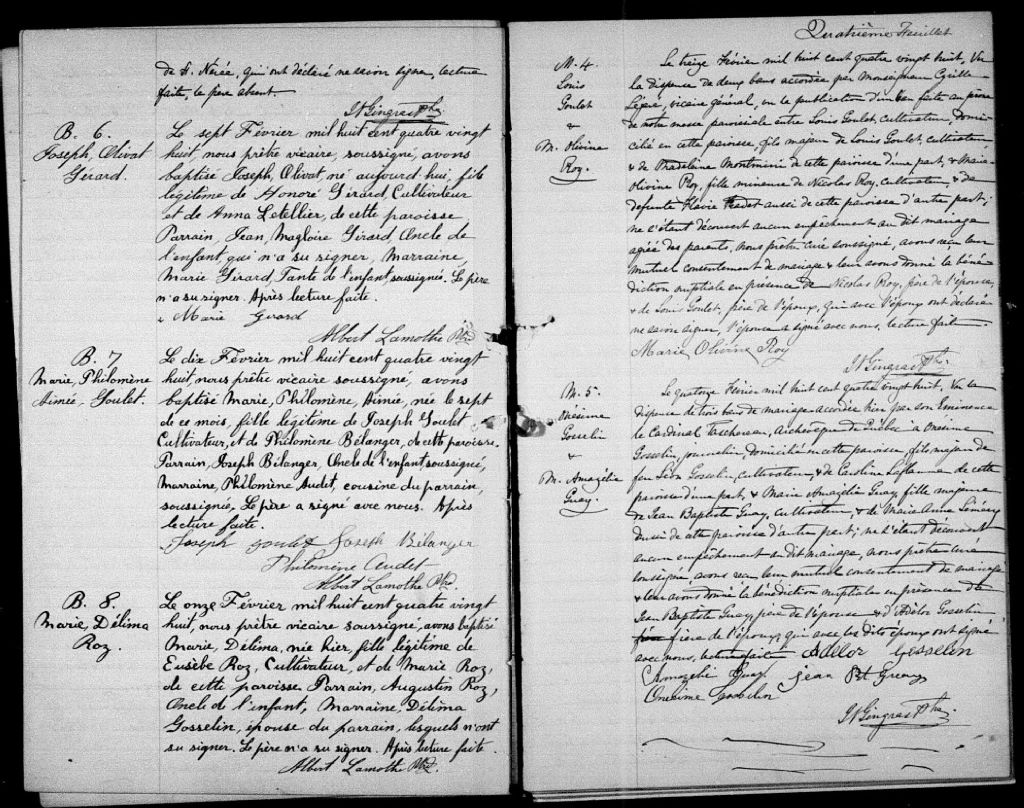 de S. Nérée, qui ont déclaré ne savoir signer, lecture
faite, le père absent.
JN Gingras Ptre
B. 6.
Joseph, Olivat
Girard.
Le sept Février mil huit cent quatre vingt
huit, nous prêtre vicaire, soussigné, avons
baptisé Joseph, Olivat, né aujourd'hui, fils
légitime de Honoré Girard, Cultivateur
et de Anna Letellier, de cette paroisse
Parrain, Jean, Magloire Girard, Oncle de
l'enfant, qui n'a su signer, Marraine,
Marie Girard, Tante de l'enfant, soussignée. Le père
n'a su signer. Après lecture faite.
Marie Girard
Albert Lamothe Ptre
B. 7
Marie, Philomène
Aimée Goulet.
Le dix Février mil huit cent quatre vingt
huit, nous prêtre vicaire soussigné, avons
baptisé Marie, Philomène, Aimée, née le sept
de ce mois, fille légitime de Joseph Goulet
Cultivateur, et de Philomène Bélanger, de cette paroisse.
Parrain, Joseph Bélanger, Oncle de l'enfant, soussigné,
Marraine, Philomène Audet, cousine du parrain,
soussignée. Le père a signé avec nous. Après
lecture faite.
Joseph Goulet Joseph Bélanger
Philomène Audet
Albert Lamothe Ptre
B. 8.
Marie, Délima
Roy.
Le onze Février mil huit cent quatre vingt
huit, nous prêtre vicaire soussigné, avons baptisé
Marie, Délima, née hier, fille légitime de
Eusèbe Roy, Cultivateur, et de Marie Roy,
de cette paroisse. Parrain, Augustin Roy,
Oncle de l'enfant, Marraine, Délima
Gosselin, épouse du parrain, lesquels n'ont
su signer. Le père n'a su signer. Après lecture faite.
Albert Lamothe Ptre
Quatrième Feuillet
M. 4
Louis
Goulet
&
M. Olivine
Roy.
Le treize Février mil huit cent quatre vingt huit, Vu
la dispense de deux bans accordée par Monseigneur Cyrille
Légaré, vicaire général, vu la publication d'un ban faite au prône
de notre messe paroissiale entre Louis Goulet, cultivateur, domi-
cilié en cette paroisse, fils majeur de Louis Goulet, cultivateur,
& de Madeleine Montmini de cette paroisse d'une part, & Marie
Olivine Roy, fille mineure de Nicolas Roy, cultivateur, & de
défunte Flavie Fradet aussi de cette paroisse d'autre part;
ne s'étant découvert aucun empêchement au dit mariage
agréé des parents, nous prêtre curé soussigné, avons reçu leur
mutuel consentement de mariage & leur avons donné la béné-
diction nuptiale en présence de Nicolas Roy, père de l'épouse,
& de Louis Goulet, père de l'époux, qui avec l'époux ont déclaré
ne savoir signer, l'épouse a signé avec nous, lecture faite.
Marie Olivine Roy
JN Gingras Ptre
M. 5.
Onésime
Gosselin
&
M. Amazélie
Guay.
Le quatorze Février mil huit cent quatre vingt huit, Vu la
dispense de trois bans de mariage accordée hier par son Eminence
le Cardinal Taschereau, Archevêque de Québec à Onésime
Gosselin, journalier, domicilié en cette paroisse, fils majeur de
feu Léon Gosselin, cultivateur, & de Caroline de cette
paroisse d'une part, & Marie Amazélie Guay, fille majeure
de Jean Baptiste Guay, cultivateur, & de Marie Anne
aussi de cette paroisse d'autre part; ne s'étant découvert
aucun empêchement au dit mariage, nous prêtre curé
soussigné, avons reçu leur mutuel consentement de mariage
& leur avons donné la bénédiction nuptiale en présence de
Jean Baptiste Guay, père de l'épouse & d'Adélor Gosselin
frère de l'époux, qui avec les dits époux ont signé
avec nous, lecture faite. Adelor Gosselin
Amazélie Guay Jean Bt Guay
Onésime Gosselin
JN Gingras Ptre